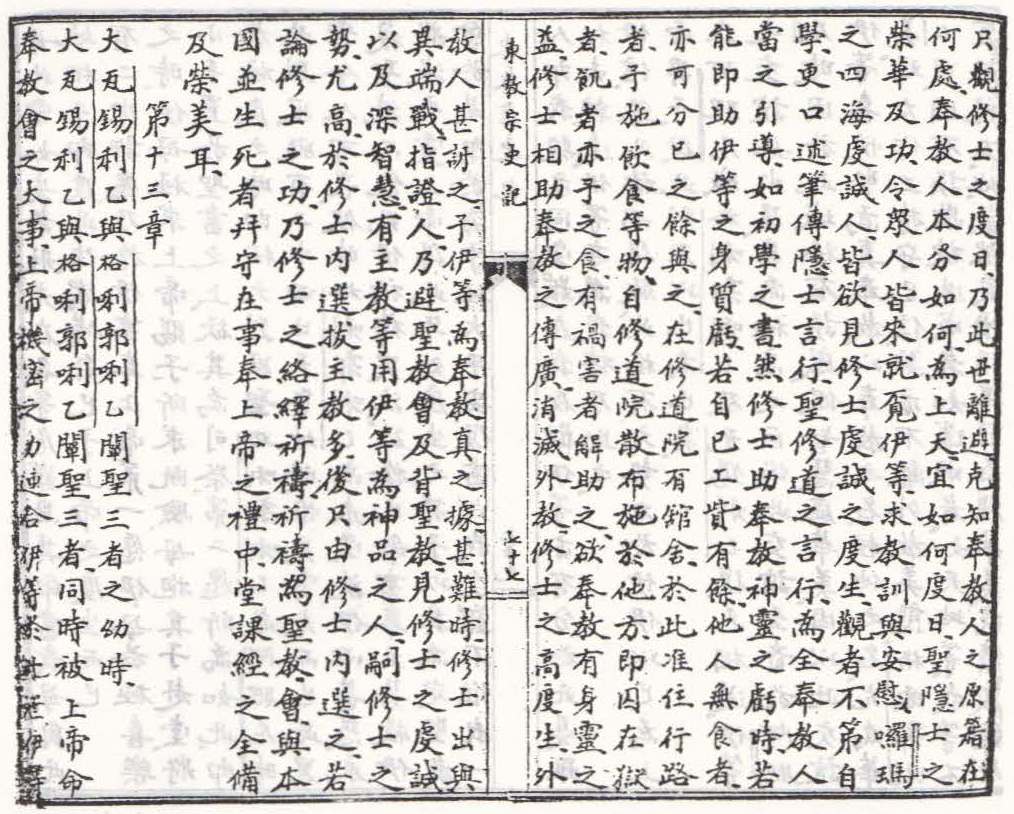 只觀修士之度日、乃此世離避克知奉教人之原籍在
何處、奉教人本分如何、為上天、宜如何度日、聖隱士之
榮華及功、令衆人皆來就覓伊等、求教訓與安慰、囉瑪
之四海虔誠人皆欲見修士虔誠之度生、觀者不第自
學、更口述筆傳隱士言行、聖修道之言行、而全奉教人
當之引導如初學之書、然修士助奉教神靈之虧時、若
能即助伊等之身質虧、若自己上貲有餘、他人無食者、
亦可分已之餘與之、在修道院有舘舍、於此准住行路
者、予施飲食等物、自修道院散布施於他方、即囚在獄
者、飢者亦予之食、有禍害者解助之、欲奉教有身靈之
益、修士相助奉教之傳廣、消滅外教、修士之高度生、外
東教宗史記 七十七
教人甚訝之、予伊等為奉教真之據、甚難時、修士出與
異端戰、指證人、乃避聖教會及背聖教、見修士之虔誠
以及深智慧、有主教等用伊等為神品之人、嗣修士之
勢尤高、於修士內選拔主教多、後只由修士內選之、若
論修士之功、乃修士之絡繹祈禱、祈禱為聖教會與本
國並生死者、拜守在事奉上帝之禮中、堂課經之全備
及榮美耳、
第十三章
大瓦錫利乙與格唎郭唎乙闡聖三者之幼時、
大瓦錫利乙與格唎郭唎乙闡聖三者、同時被上帝命
奉教會之大事、上帝機密之力連合伊等於